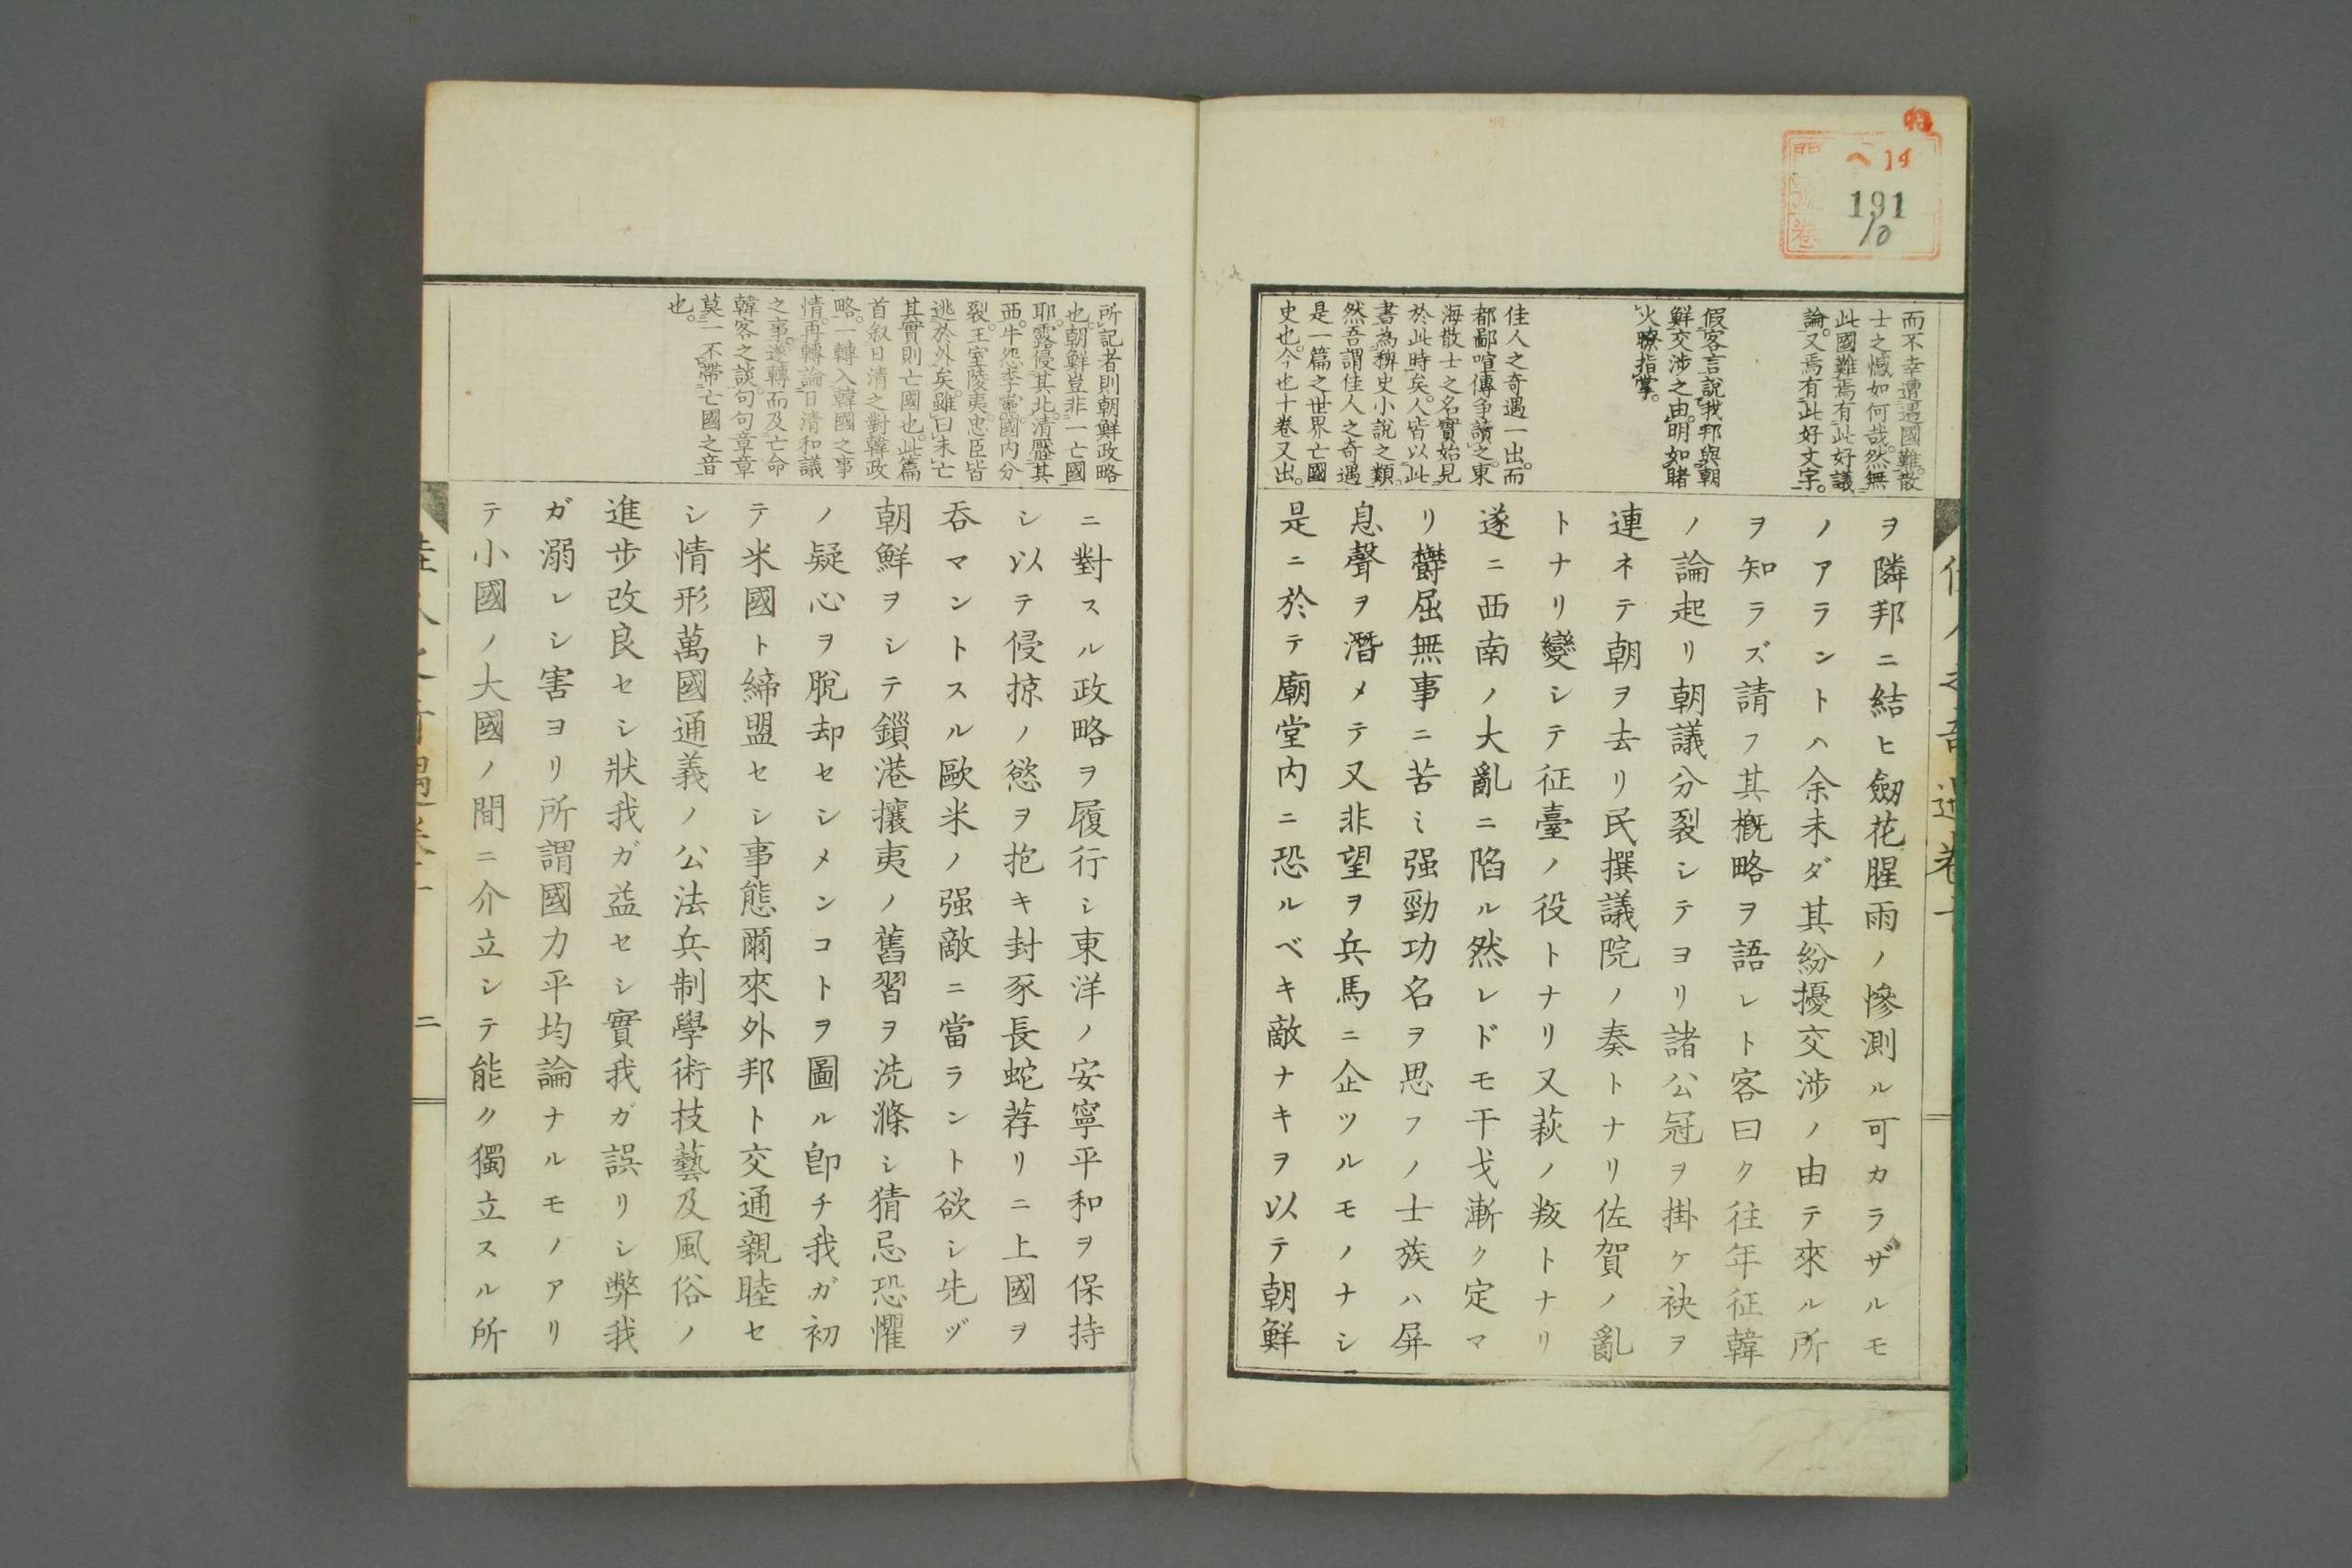 ヘ14
191
10
而不幸遭遇國難。散
士之憾如何哉。然無
此國難焉有此好議
論。又焉有此好文字。
假客言說我邦與朝
鮮交涉之由。明如睹
火。瞭指掌。
佳人之奇遇一出。而
都鄙喧傳爭讀之。東
海散士之名實始見
於此時矣。人皆以此
書為稗史小說之類。
然吾謂佳人之奇遇
是一篇之世界亡國
史也。今也十卷又出。
ヲ隣邦ニ結ヒ劔花腥雨ノ慘測ル可カラザルモ
ノアラントハ余未ダ其紛擾交涉ノ由テ來ル所
ヲ知ラズ請フ其概略ヲ語レト客曰ク往年征韓
ノ論起リ朝議分裂シテヨリ諸公冠ヲ掛ケ袂ヲ
連ネテ朝ヲ去リ民撰議院ノ奏トナリ佐賀ノ亂
トナリ變シテ征臺ノ役トナリ又萩ノ叛トナリ
遂ニ西南ノ大亂ニ陷ル然レドモ干戈漸ク定マ
リ欝屈無事ニ苦ミ强勁功名ヲ思フノ士族ハ屏
息聲ヲ潛メテ又非望ヲ兵馬ニ企ツルモノナシ
是ニ於テ廟堂内ニ恐ルベキ敵ナキヲ以テ朝鮮
所記者則朝鮮政略
也。朝鮮豈非一亡國
耶。露侵其北。清壓其
西。牛怨李黨。國内分
裂。王室陵夷。忠臣皆
逃於外矣。雖曰未亡
其實則亡國也。此篇
首叙日清之對韓政
略。一轉入韓國之事
情。再轉論日清和議
之事。遂轉而及亡命
韓客之談。句句章章
莫一不帶亡國之音
也。
ニ對スル政略ヲ履行シ東洋ノ安寧平和ヲ保持
シ以テ侵掠ノ慾ヲ抱キ封豕長蛇荐リニ上國ヲ
呑マントスル歐米ノ强敵ニ當ラント欲シ先ヅ
朝鮮ヲシテ鎻港攘夷ノ舊習ヲ洗滌シ猜忌恐懼
ノ疑心ヲ脫却セシメンコトヲ圖ル卽チ我ガ初
テ米國ト締盟セシ事態爾來外邦ト交通親睦セ
シ情形萬國通義ノ公法兵制學術技藝及風俗ノ
進步改良セシ狀我ガ益セシ實我ガ誤リシ弊我
ガ溺レシ害ヨリ所謂國力平均論ナルモノアリ
テ小國ノ大國ノ間ニ介立シテ能ク獨立スル所
二